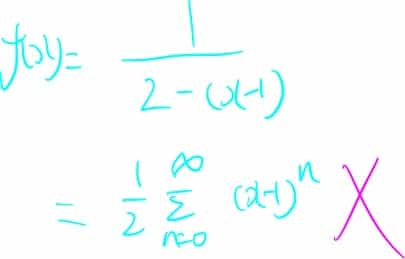 f(x)= \frac{1}{2-(x-1)}
= \frac{1}{2} \sum_{n=0}^{\infty} (x-1)^n X